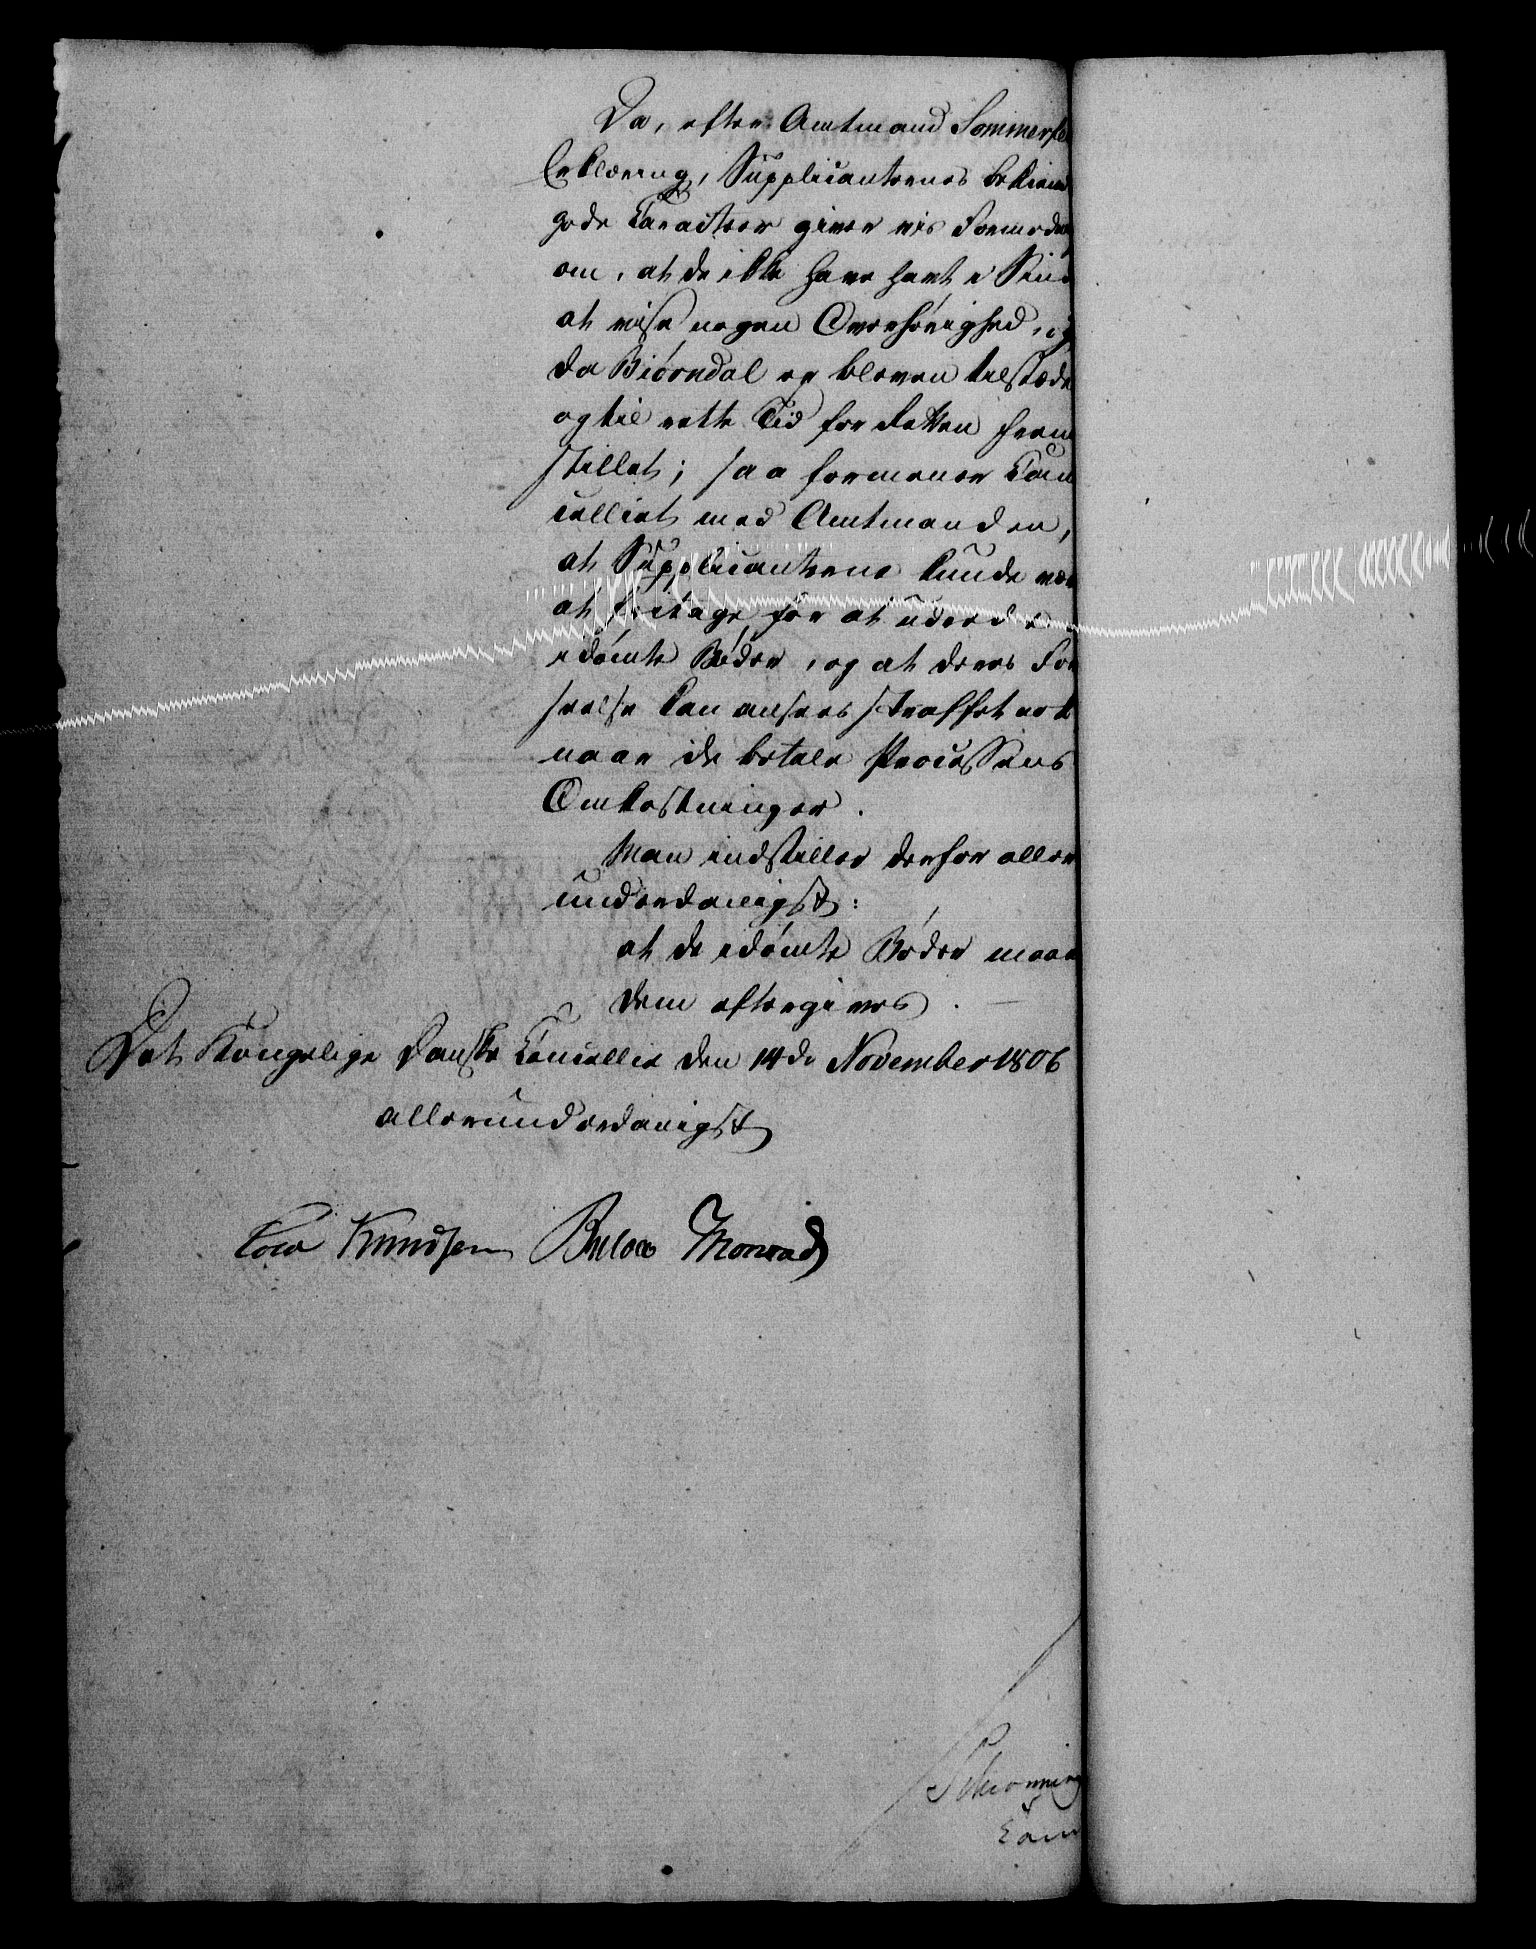 Da, efter Amtmand Sommerfel
Erklæring, Supplicanternes bekiend
gode Caracteer giver vis Formod
om, at de ikke have havt i Sind
at vise nogen Overhørighed, og
da Biørndal er bleven tilstæde
og til rette Tid for Retten frem
stillet; saa formener Can
celliet med Amtmanden,
at Supplicanterne kunde vær
at fritage for at udrede
idømte Bøder, og at deres For
seelse kan ansees straffet nok
naar de betale Processens
Omkostninger.
Man indstiller derfor aller
underdanigst:
at de idømte Bøder maae
dem eftergives.
Det Kongelige Danske Cancellie den 14de November 1806
allerunderdanigst
Cold Knudsen Bülow Monrad
Schønning